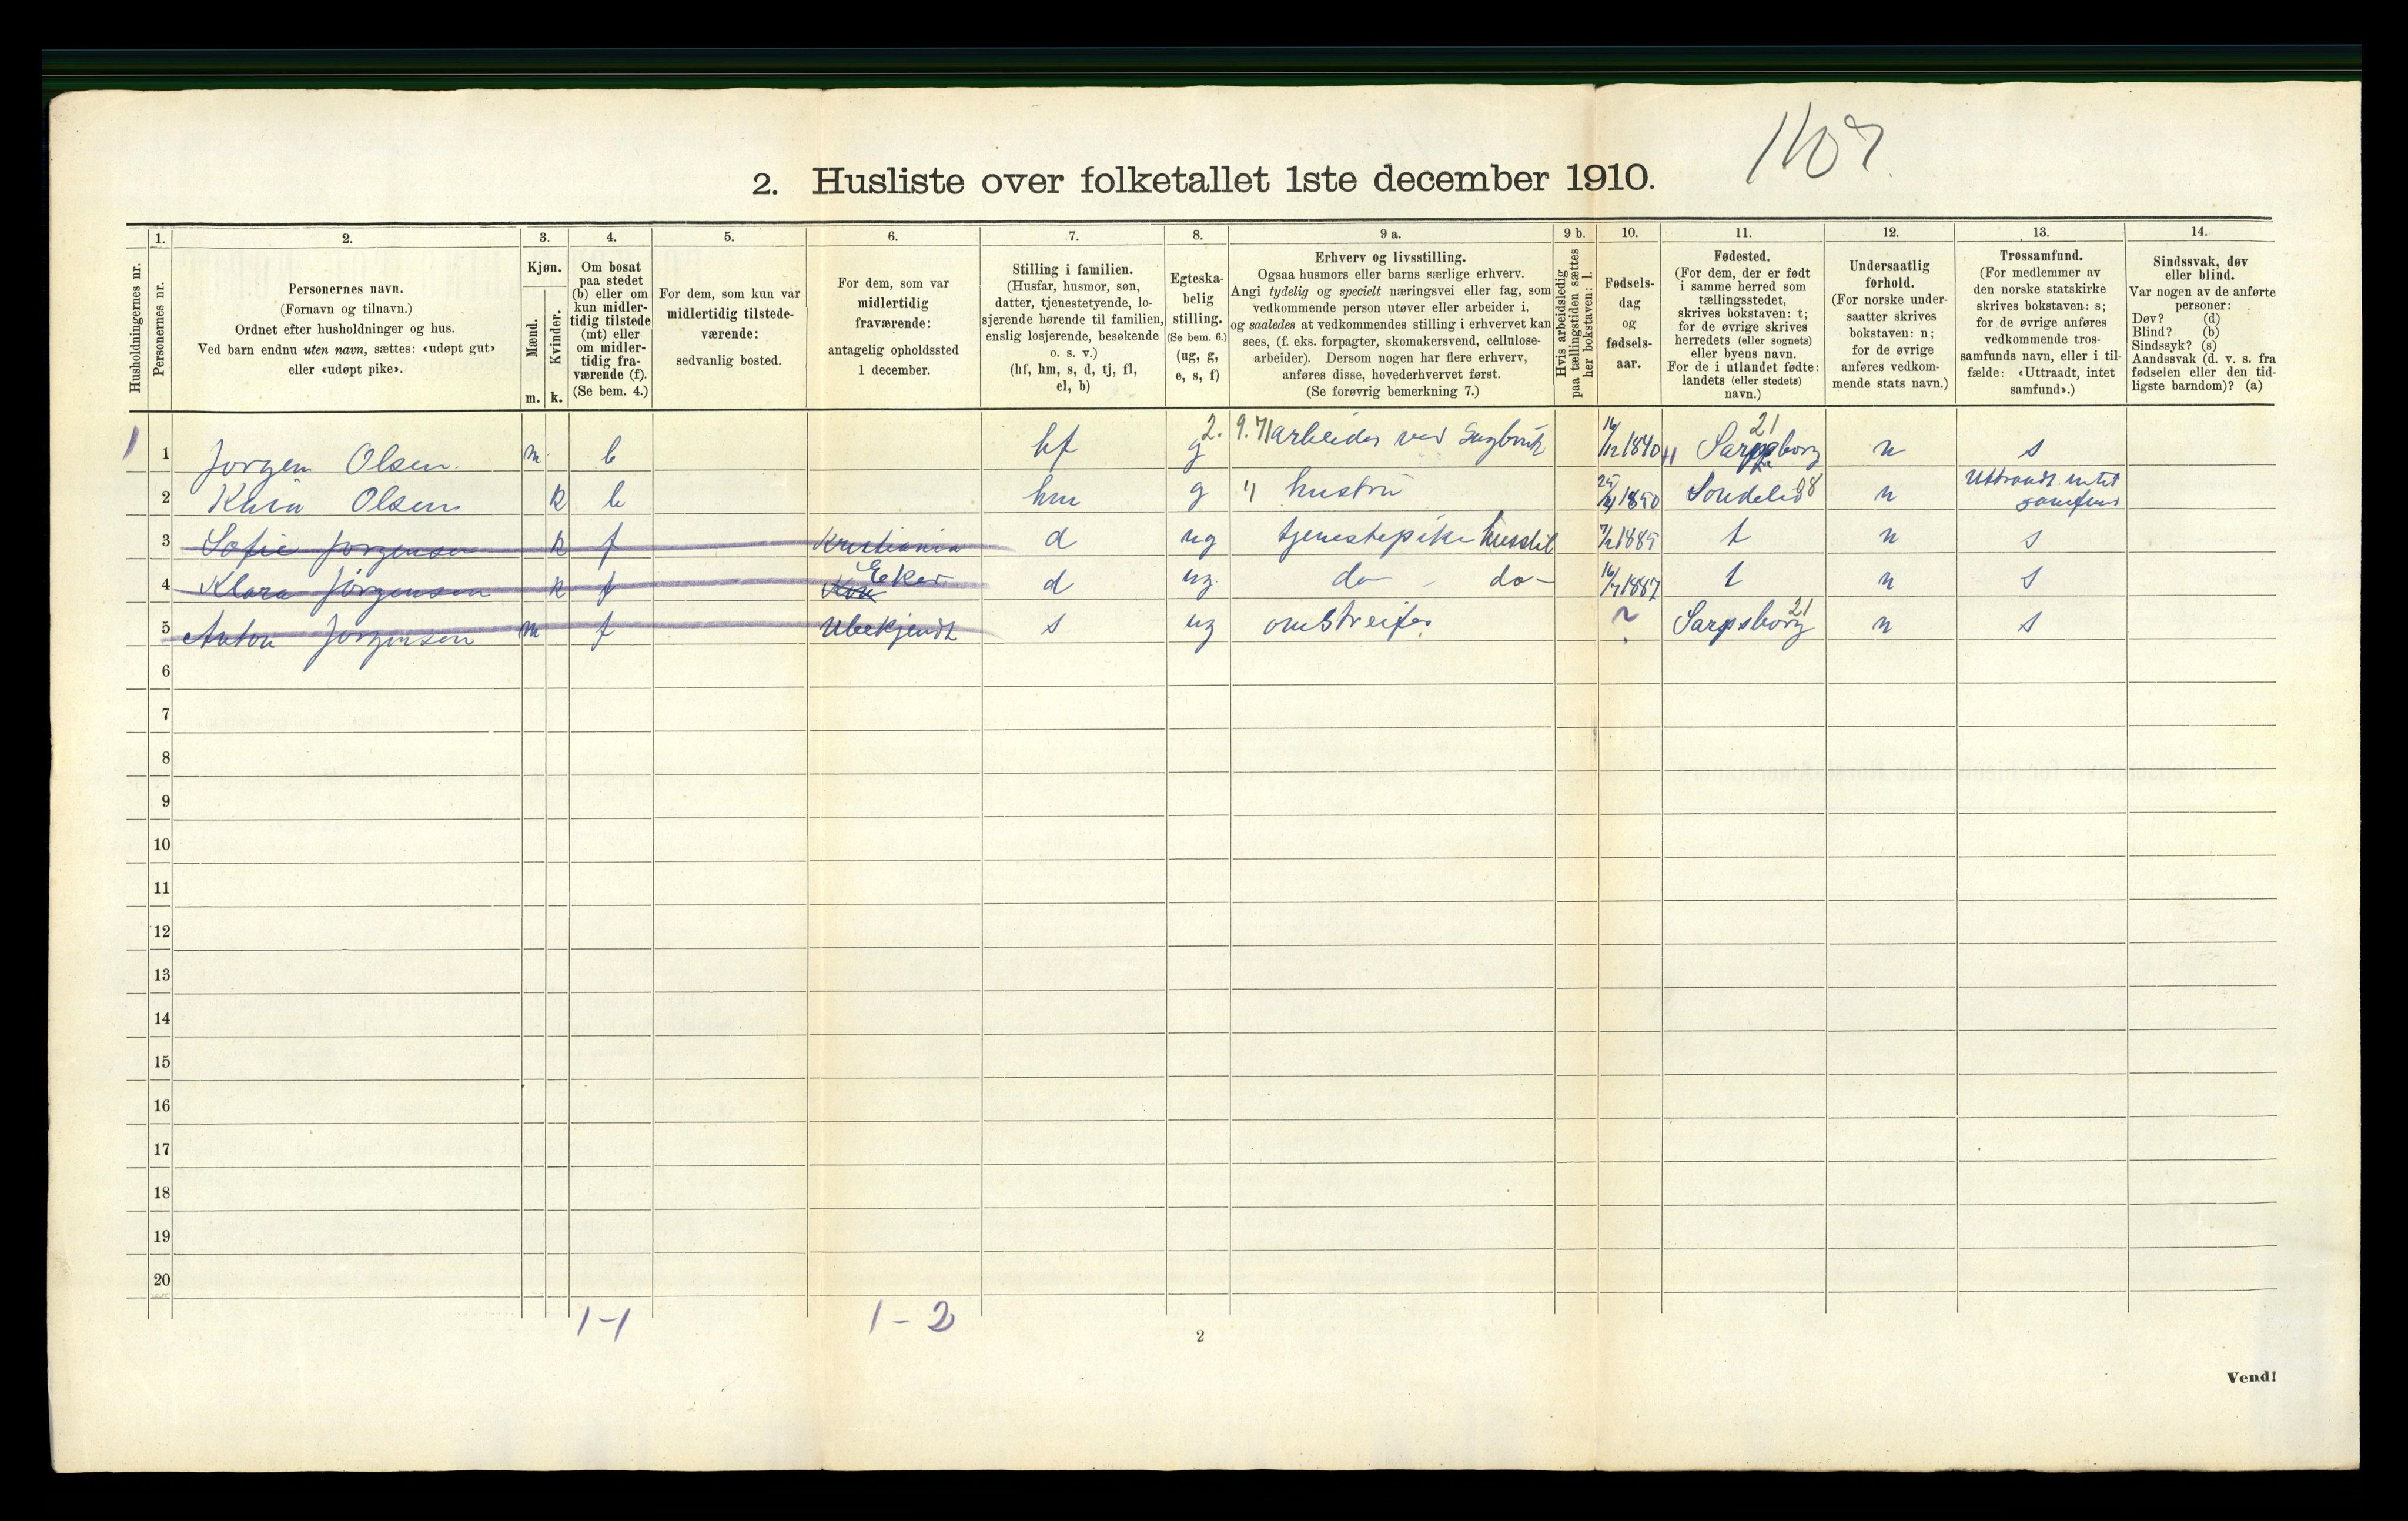 1107
2. Husliste over folketallet 1ste december 1910.
Husholdningernes nr.
1.
Personernes nr.
2.
Personernes navn.
(Fornavn og tilnavn.)
Ordnet efter husholdninger og hus.
Ved barn endnu uten navn, sættes: «udøpt gut»
eller «udøpt pike».
3.
Kjøn.
Mænd.
Kvinder.
m. k.
4.
Om bosat
paa stedet
(b) eller om
kun midler-
tidig tilstede
(mt) eller
om midler-
tidig fra-
værende (f).
(Se bem. 4.)
5.
For dem, som kun var
midlertidig tilstede-
værende:
sedvanlig bosted.
6.
For dem, som var
midlertidig
fraværende:
antagelig opholdssted
1 december.
7.
Stilling i familien.
(Husfar, husmor, søn,
datter, tjenestetyende, lo-
sjerende hørende til familien,
enslig losjerende, besøkende
o. s. v.)
(hf, hm, s, d, tj, fl,
el, b)
8.
Egteska-
belig
stilling.
(Se bem. 6.)
(ug, g,
e, s, f)
9 a.
Erhverv og livsstilling.
Ogsaa husmors eller barns særlige erhverv.
Angi tydelig og specielt næringsvei eller fag, som
vedkommende person utøver eller arbeider i,
og saaledes at vedkommendes stilling i erhvervet kan
sees, (f. eks. forpagter, skomakersvend, cellulose-
arbeider). Dersom nogen har flere erhverv,
anføres disse, hovederhvervet først.
(Se forøvrig bemerkning 7.)
9 b.
Hvis arbeidsledig
paa tællingstiden sættes
her bokstaven: l.
10.
Fødsels-
dag
og
fødsels-
aar.
11.
Fødested.
(For dem, der er født
i samme herred som
tællingsstedet,
skrives bokstaven: t;
for de øvrige skrives
herredets (eller sognets)
eller byens navn.
For de i utlandet fødte:
landets (eller stedets)
navn.)
12.
Undersaatlig
forhold.
(For norske under-
saatter skrives
bokstaven: n;
for de øvrige
anføres vedkom-
mende stats navn.)
13.
Trossamfund.
(For medlemmer av
den norske statskirke
skrives bokstaven: s;
for de øvrige anføres
vedkommende tros-
samfunds navn, eller i til-
fælde: «Uttraadt, intet
samfund».)
14.
Sindssvak, døv
eller blind.
Var nogen av de anførte
personer:
Døv? (d)
Blind? (b)
Sindssyk? (s)
Aandssvak (d. v. s. fra
fødselen eller den tid-
ligste barndom)? (a)
1 1 Jorgen Olsen m b hf g 2. 9.71 arbeider ved Sagbruk 16/12 1840 Sarpsborg 21 n s
2 Olsen k b hm g " hustru 1850 Sondeled 08 n Uttraadt intet
samfund
3 Sofie Jorgensen k f Kristiania d ug tjenestepike husstel 7/12 1885 t n s
4 Klara Jörgensen k f Eker d ug do - do - 16/7 1887 t n s
5 Anton Jorgensen m f Ubekjendt s ug omstreifer ? Sarpsborg 21 n s
6
7
8
9
10
11
12
13
14
15
16
17
18
19
20
1-1 1-2
2
Vend!